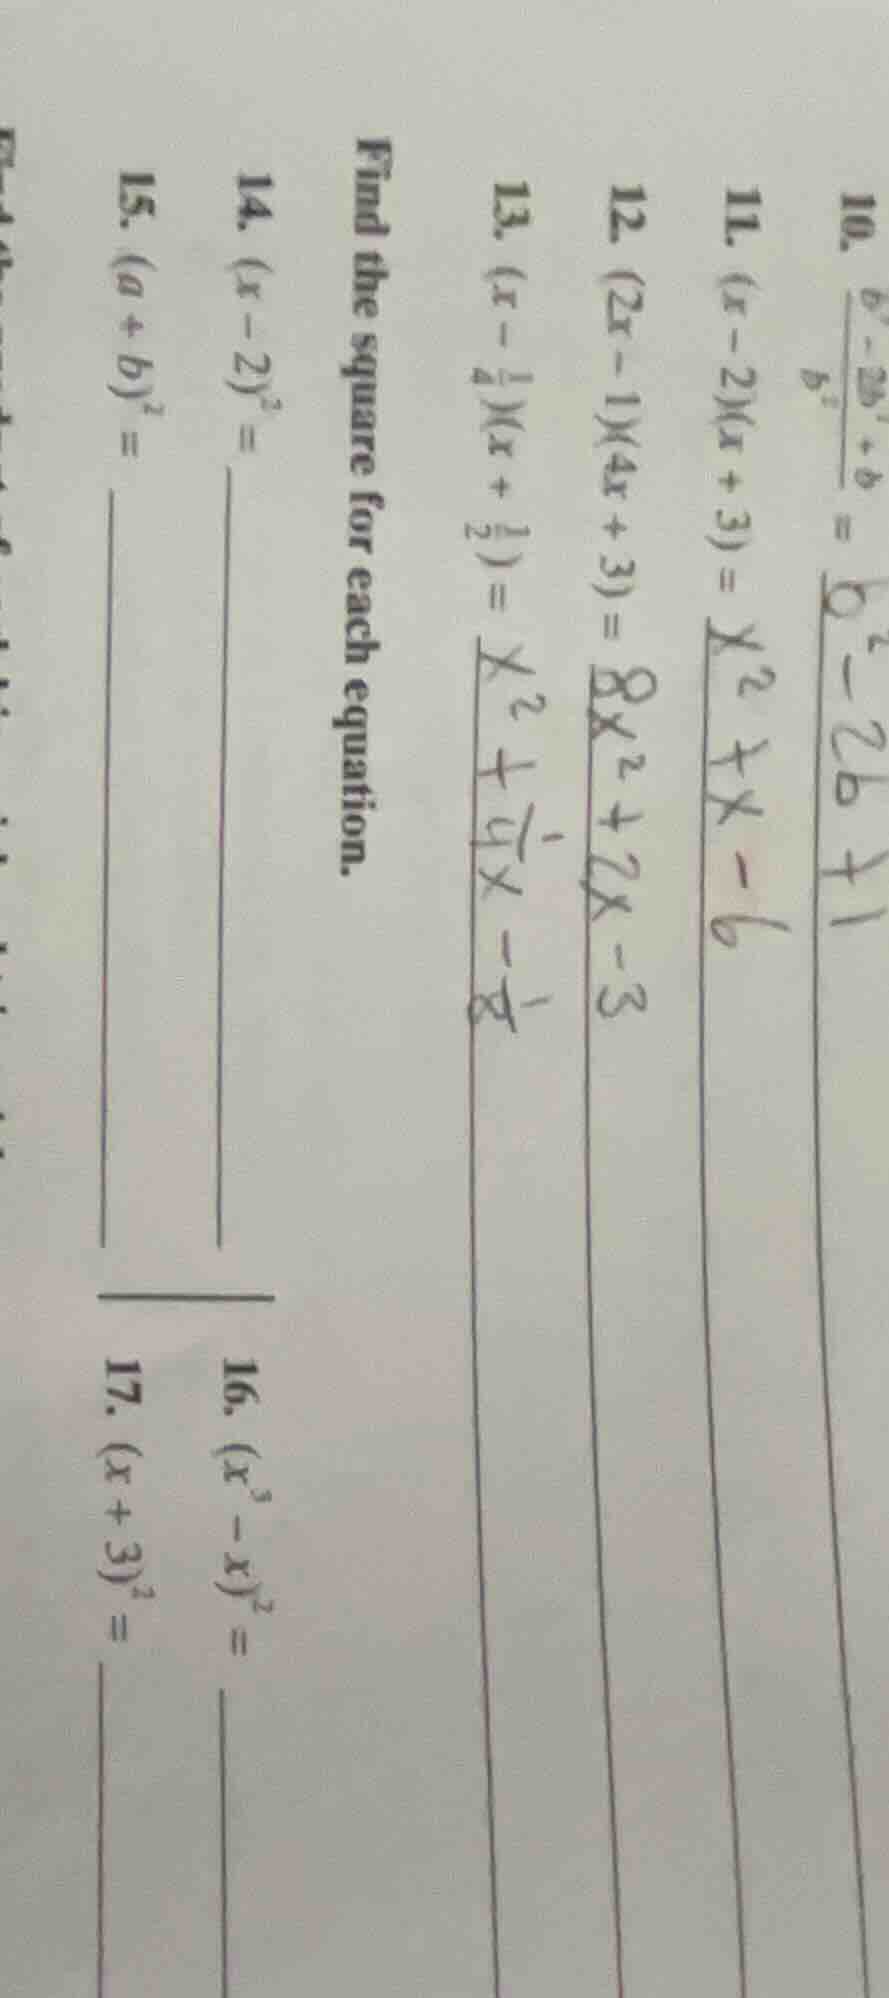 10. = b² - 2b + 1
11. (x - 2)(x + 3) = x² + x - 6
12. (2x - 1)(4x + 3) = 8x² + 2x - 3
13. (x - 1/4)(x + 1/2) = x² + 1/4x - 1/8
Find the square for each equation.
14. (x - 2)² =
16. (x³ - x)² =
15. (a + b)² =
17. (x + 3)² =